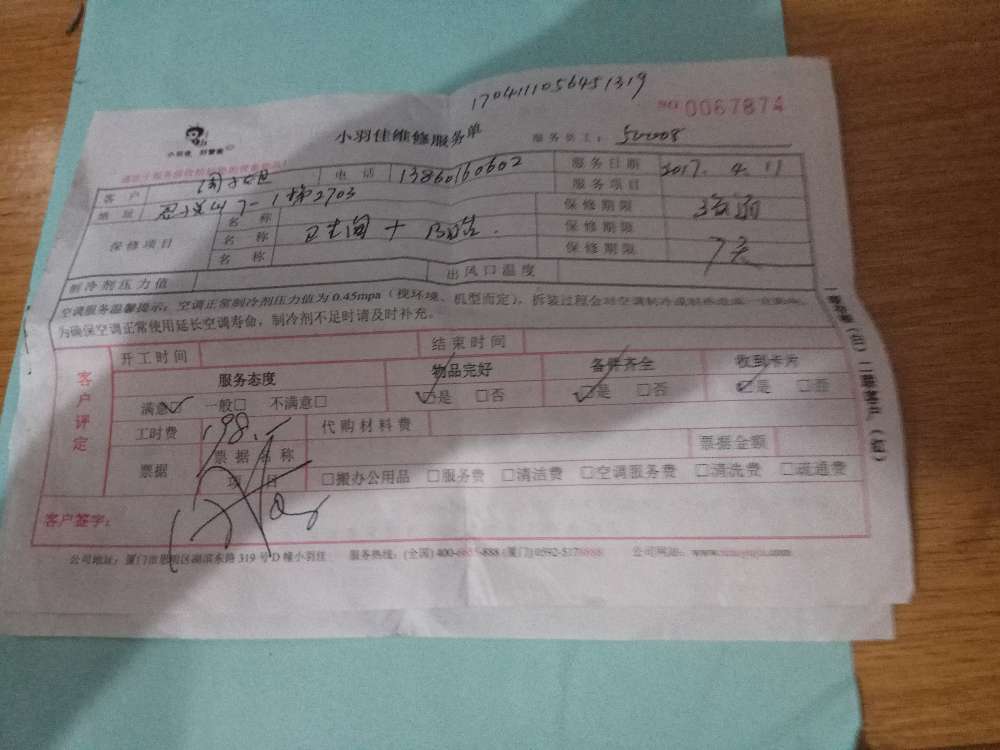 1704111056451319
NO 0067874
小羽佳 好管家
小羽佳维修服务单
服务员工: 500008
客户 电话 13860160602 服务日期 2017. 4. 11
服务项目
地址 7-1梯2703
保修项目 名称 卫生间 + 保修期限
名称 保修期限 7天
名称 保修期限
制冷剂压力值 出风口温度
空调服务温馨提示: 空调正常制冷剂压力值为0.45mpa (视环境、机型而定), 拆装过程会对空调制冷
为确保空调正常使用延长空调寿命, 制冷剂不足时请及时补充。
客户评定
开工时间 结束时间
服务态度 物品完好 备件齐全 收到卡片
满意□ 一般□ 不满意□ □是 □否 □是 □否 □是 □否
工时费 198. 代购材料费
票据 票据名称 票据金额
项目 □搬办公用品 □服务费 □清洁费 □空调服务费 □清洗费 □疏通费
客户签字:
公司地址: 厦门市思明区湖滨东路319号D幢小羽佳 服务热线: (全国) 400- -888 (厦门)0592-517 公司网站: